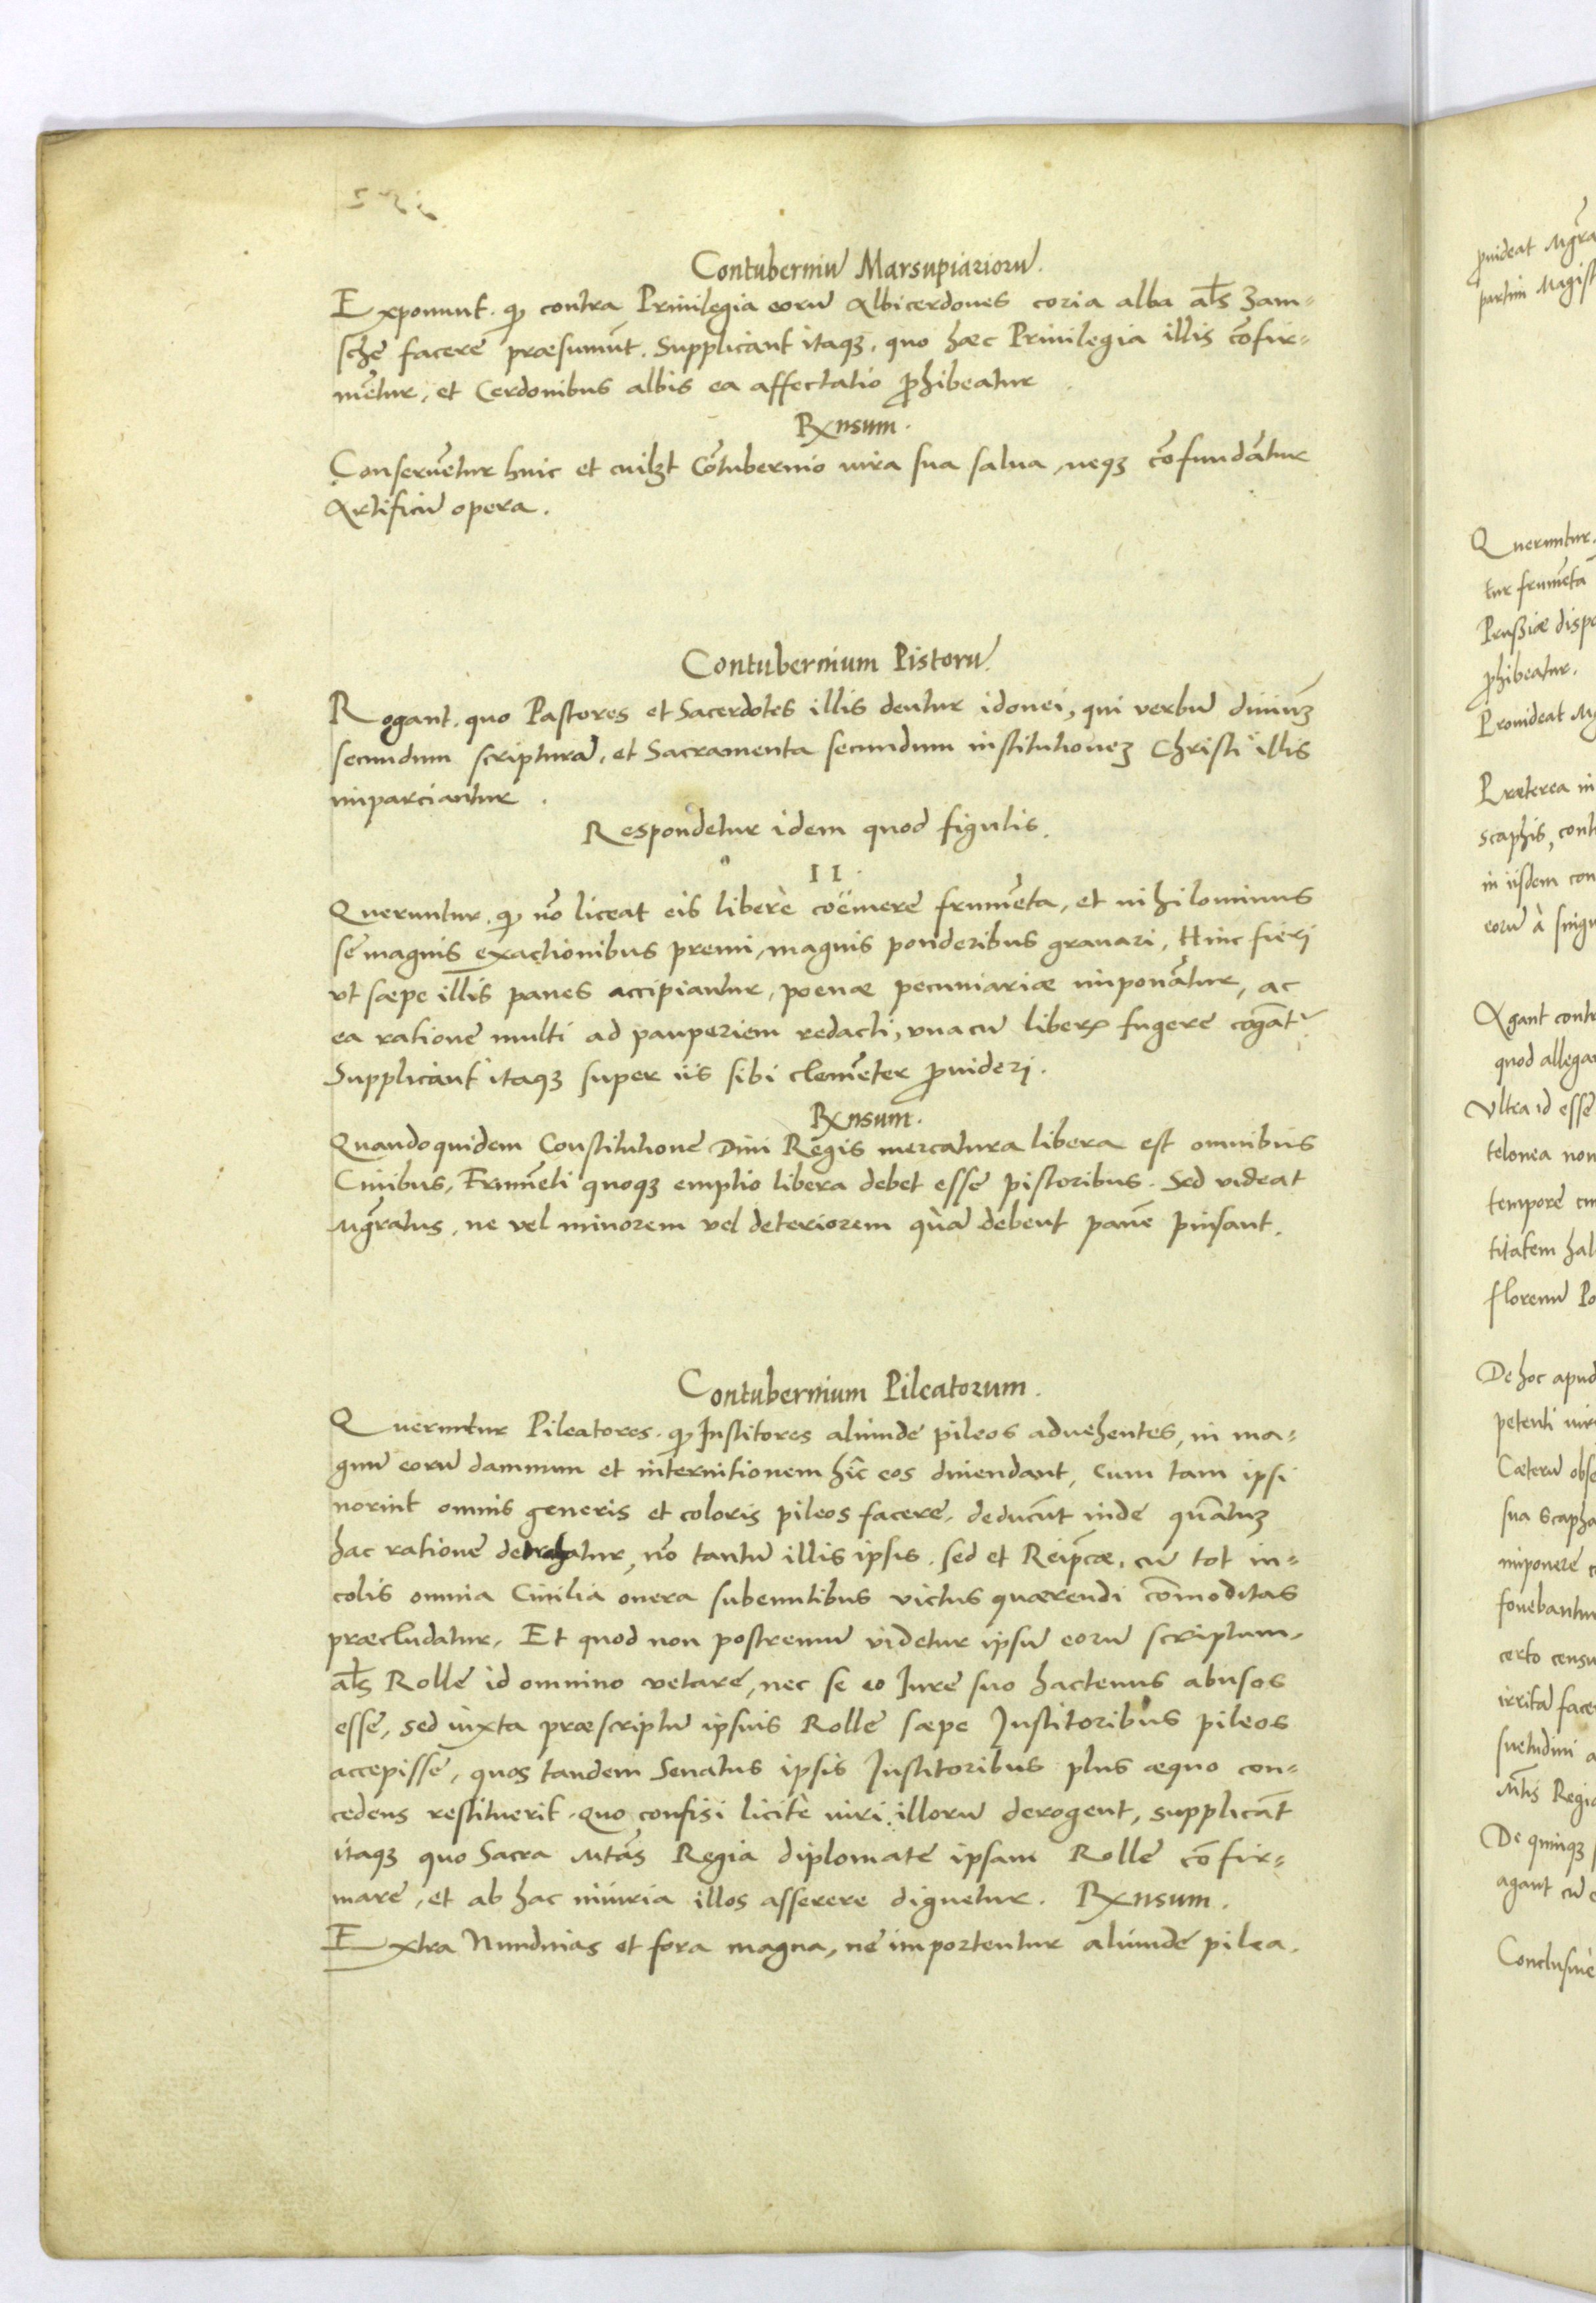 Contuberniū Marsupiariorū.
Exponunt. qƺ contra Priuilegia eorū Albicerdones coria alba al̄s Zam-
sche facere præsumūt. Supplicant itaqƺ, quo hæc Priuilegia illis cōfir-
mētur, et Cerdonibus albis ea affectatio ꝓhibeatur.
Rxnsum.
Conseruētur huic et cuilƺt Cōtubernio iura sua salua, neqƺ cōfundātur
Artificū opera.
Contubernium Pistorū.
Rogant. quo Pastores et Sacerdotes illis dentur idonei, qui verbū diuinuƺ
secundum scripturā, et Sacramenta secundum institutioneƺ Christi illis
imparciantur.
Respondetur idem quod figulis.
II.
Queruntur. qƺ nō liceat eis liberè coëmere frumēta, et nihilominus
se magnis exactionibus premi, magnis ponderibus grauari, Hinc fieri
vt sæpe illis panes accipiantur, poenæ pecuniariæ imponātur, ac
ea ratione multi ad pauperiem redacti, vna cū liberꝭ fugere cogāt᷑.
Supplicant itaqƺ super iis sibi clemēter ꝓuideri.
Rxnsum.
Quandoquidem Constitutione Diui Regis mercatura libera est omnibus
Ciuibus, Frumēti quoqƺ emptio libera debet esse pistoribus. Sed videat
Mgr̄atus, ne vel minorem vel deteriorem quā debent panē pinsant.
Contubernium Pileatorum.
Queruntur Pileatores. qƺ Institores aliunde pileos aduehentes, in ma-
gnū eorū damnum et internitionem hîc eos diuendant, Cum tam ipsi
norint omnis generis et coloris pileos facere, deducūt inde quātuƺ
hac ratione detrahatur, nō tantū illis ipsis, sed et Reip̄cæ, cū tot in-
colis omnia Ciuilia onera subeuntibus victus quærendi cōmoditas
præcludatur, Et quod non postremū videtur ipsū eorū scriptum,
al̄s Rolle id omnino vetare, nec se eo Jure suo hactenus abusos
esse, sed iuxta præscriptū ipsius Rolle sæpe Institoribus pileos
accepisse, quos tandem Senatus ipsis Institoribus plus æquo con-
cedens restituerit. quo confisi licitè iuri illorū derogent, supplicāt
itaqƺ quo Sacra Mtās Regia diplomate ipsam Rolle cōfir-
mare, et ab hac iniuria illos asserere dignetur. Rxnsum.
Extra Nundinas et fora magna, ne importentur aliunde pilea.
ꝓuideat Mgra
partim Magist
Queruntur.
tur frumēta
Prussiæ disp
ꝓhibeatur.
Prouideat M
Præterea in
scaphis, cont
in iisdem con
eorū à singu
Agant contr
quod allega
Vltra id esse
telonea non
tempore cu
titatem hal
florenū Po
De hoc apud
petenti iur
Cæterū obse
sua scapha
imponere c
fouebantur
certo censu
irritā face
suetudini a
Mtis Regia
De quinqƺ
agant cū
Conclusiuè